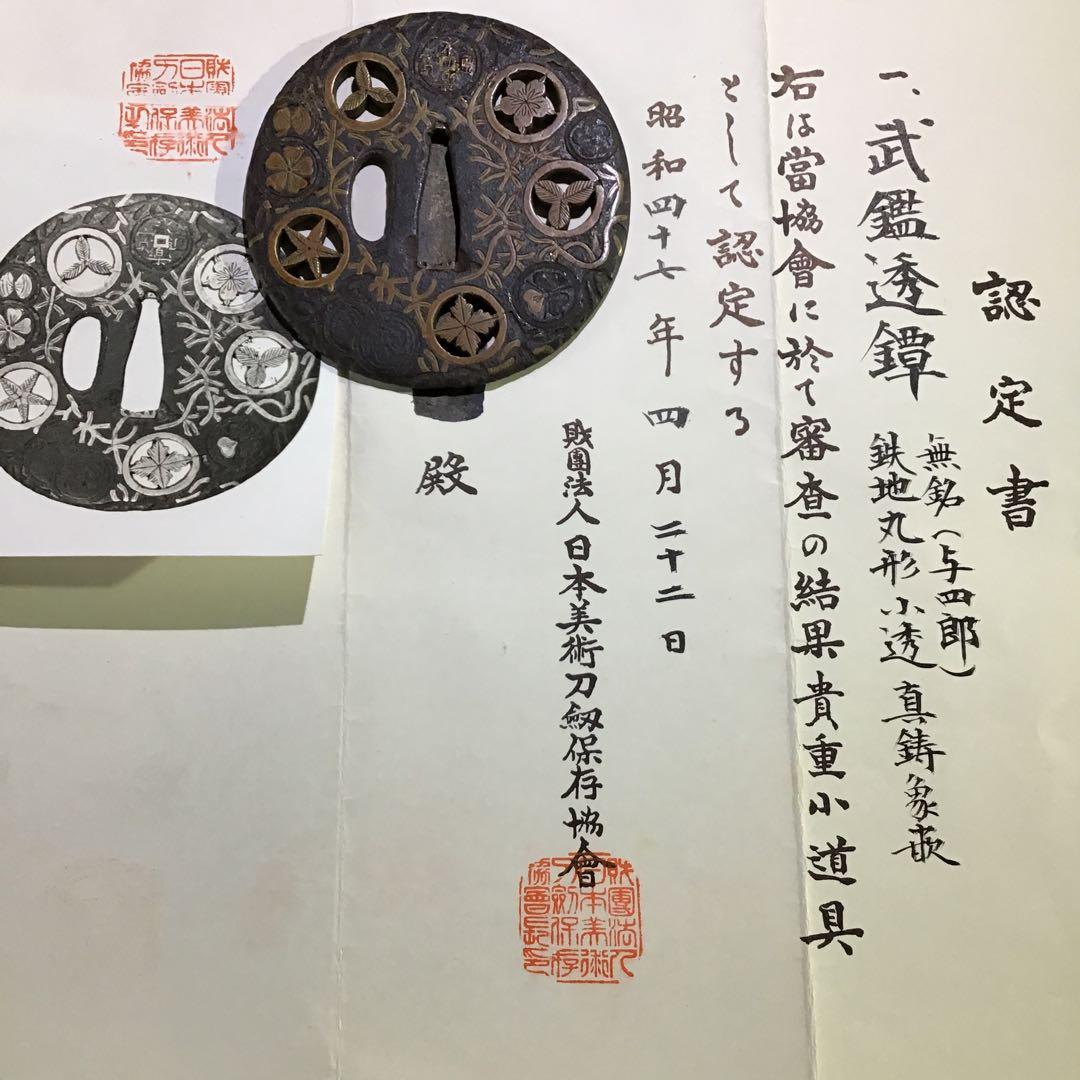 認定書
一、武鑑透鐔
無銘(与四郎)
鉄地丸形小透真鋳象嵌
右は當協會に於て審査の結果貴重小道具
として認定する
昭和四十七年四月二十二日
財團法人日本美術刀劔保存協會
殿
財團法人
日本美術
刀劔保存
協會長印